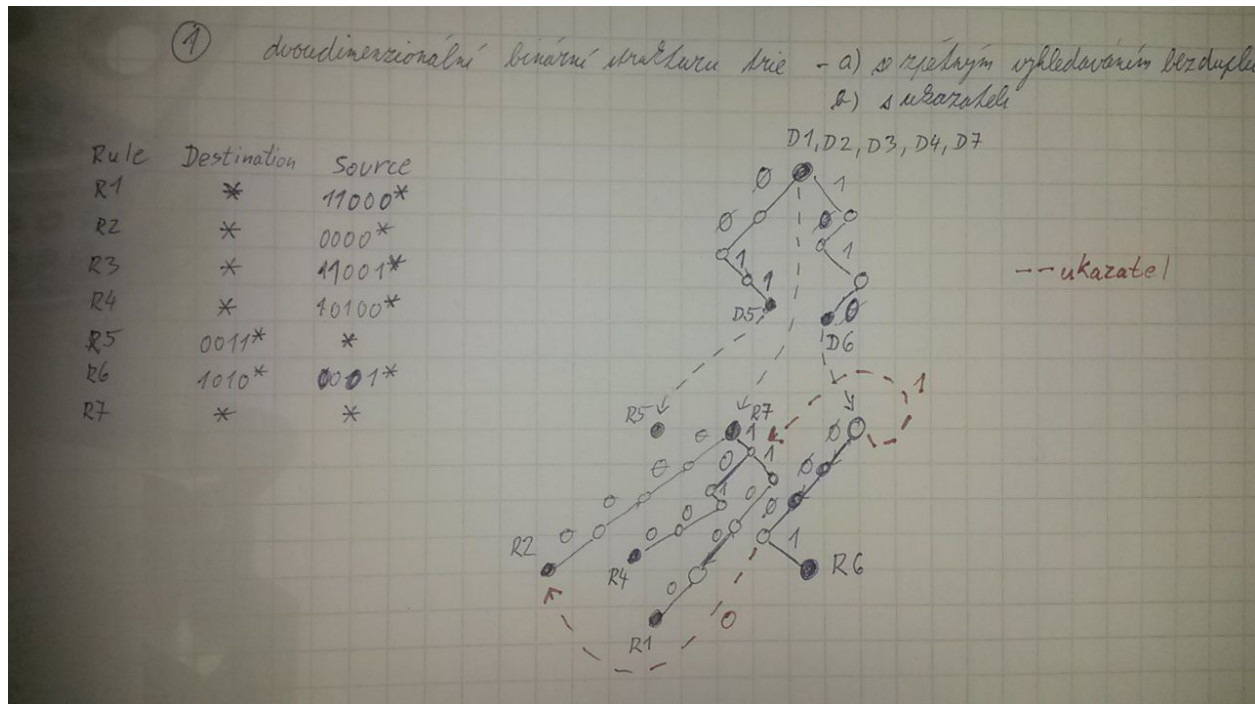 1 dvoudimenzionální binární strukturu trie - a) s zpětným vyhledáváním bez duplu
b) s ukazateli
D1, D2, D3, D4, D7
Rule Destination Source
R1 * 11000*
R2 * 0000*
R3 * 11001*
R4 * 10100*
R5 0011* *
R6 1010* 0001*
R7 * *
0 1
0 0
1 1
1
D5 0
D6
--- ukazatel
R5 R7 1
0 1 0
0 0 1 0
0 1 0 0
0 0 0 1
R2 R4 R6
0
R1 0